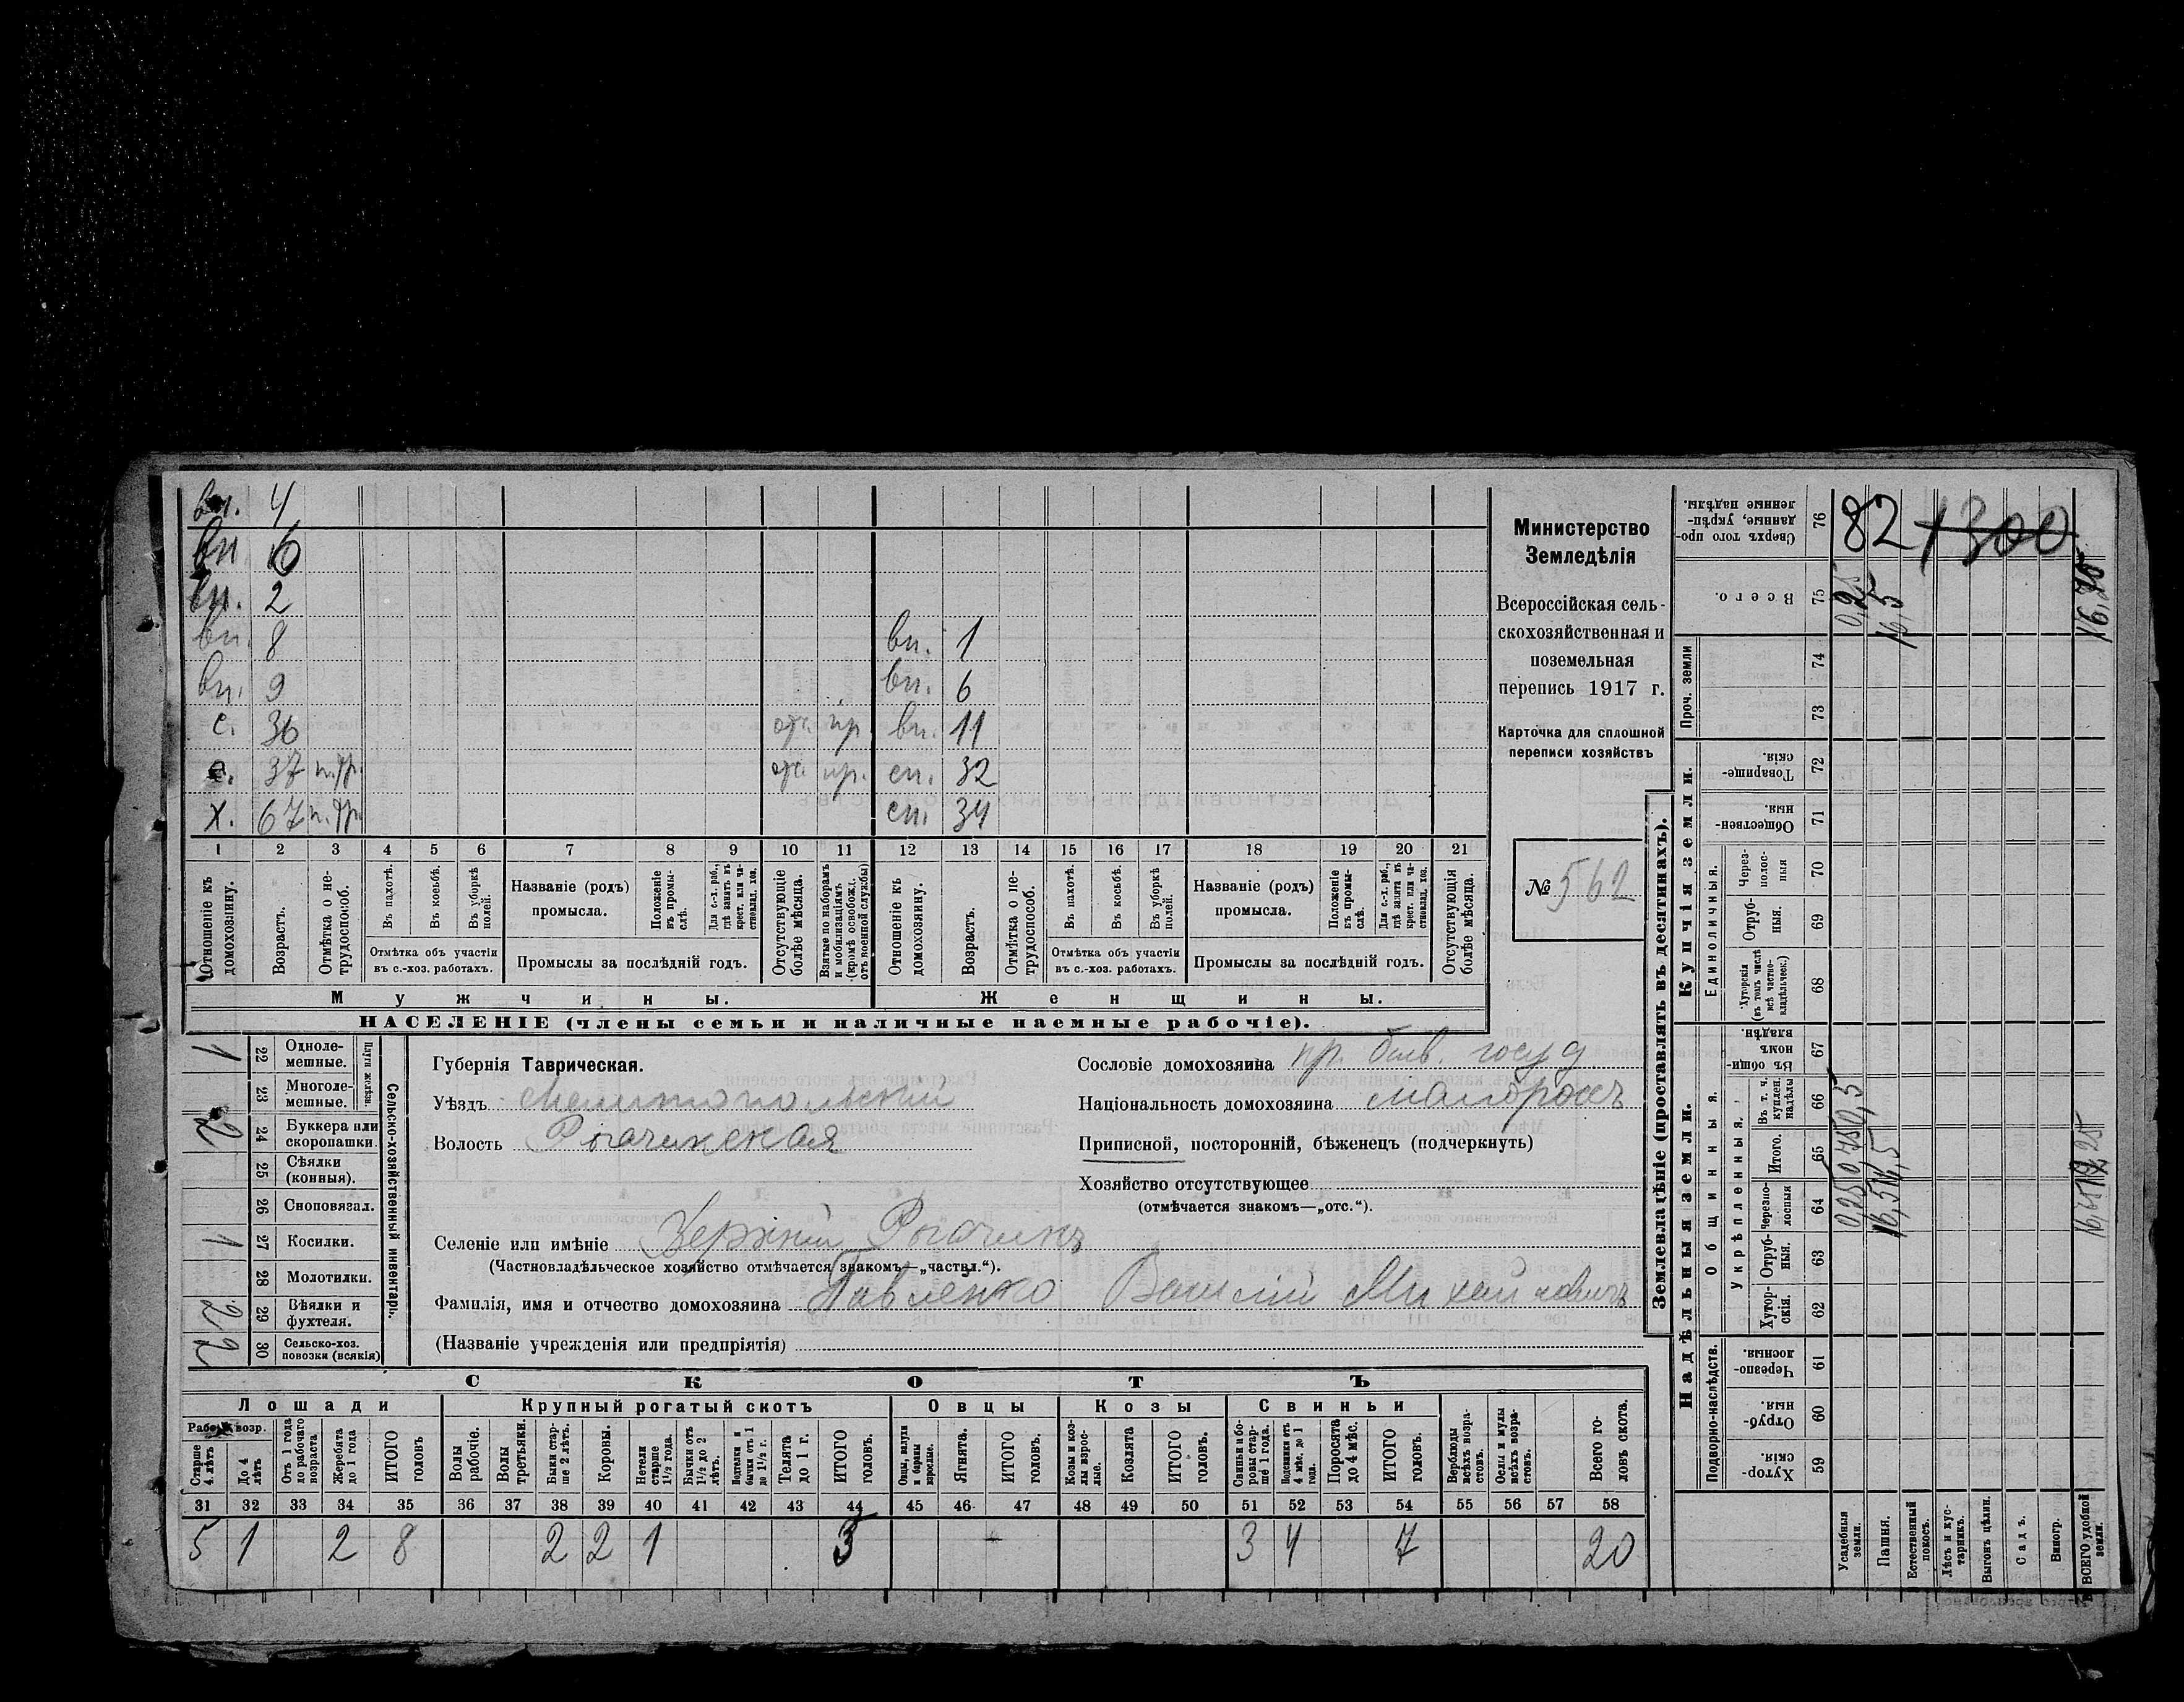 вн. 4
вн 6
вн. 2
вн. 8 вн. 1
вн. 9 вн. 6
с. 36 отс. пр. вн. 11
с. 37 п.тр. отс. пр. сн. 32
х. 67 п.тр. сн. 34
1 2 3 4 5 6 7 8 9 10 11 12 13 14 15 16 17 18 19 20 21
Отношеніе къ домохозяину.
Возрастъ.
Отмѣтка о нетрудоспособ.
Въ пахотѣ.
Въ косьбѣ.
Въ уборкѣ полей.
Отмѣтка объ участіи
въ с.-хоз. работахъ.
Названіе (родъ)
промысла.
Положеніе въ промыслѣ.
Для с.-х. раб., гдѣ занятъ въ крест. или частновлад. хоз.
Промыслы за послѣдній годъ.
Отсутствующіе болѣе мѣсяца.
Взятые по наборамъ и мобилизаціямъ (кромѣ освобожд. отъ военной службы)
Отношеніе къ домохозяину.
Возрастъ.
Отмѣтка о нетрудоспособ.
Въ пахотѣ.
Въ косьбѣ.
Въ уборкѣ полей.
Отмѣтка объ участіи
въ с.-хоз. работахъ.
Названіе (родъ)
промысла.
Положеніе въ промыслѣ.
Для с.-х. раб., гдѣ занята въ крест. или частновлад. хоз.
Промыслы за послѣдній годъ.
Отсутствующія болѣе мѣсяца.
Мужчины.
Женщины.
НАСЕЛЕНІЕ (члены семьи и наличные наемные рабочіе).
Министерство
Земледѣлія
Всероссійская сель-
скохозяйственная и
поземельная
перепись 1917 г.
Карточка для сплошной
переписи хозяйствъ
№ 562
Сельско-хозяйственный инвентарь.
Плуги желѣзн.
22 Одноле-мешные. 1
23 Многоле-мешные.
24 Буккера или скоропашки. 2
25 Сѣялки (конныя).
26 Сноповязал.
27 Косилки. 1
28 Молотилки.
29 Вѣялки и фухтеля. 2
30 Сельско-хоз. повозки (всякія) 2
Губернія Таврическая.
Уѣздъ Мелитопольскій
Волость Рогачикская
Сословіе домохозяина кр. быв. госуд
Національность домохозяина малороссъ
Приписной, посторонній, бѣженецъ (подчеркнуть)
Хозяйство отсутствующее
(отмѣчается знакомъ—„отс.“).
Селеніе или имѣніе Верхній Рогачикъ
(Частновладѣльческое хозяйство отмѣчается знакомъ—„частвл.“).
Фамилія, имя и отчество домохозяина Павленко Василій Михайловичъ
(Названіе учрежденія или предпріятія)
СКОТЪ
Лошади Крупный рогатый скотъ Овцы Козы Свиньи
Рабоч. возр.
Старше 4 лѣтъ
До 4 лѣтъ
Отъ 1 года до рабочаго возраста
Жеребята до 1 года
ИТОГО головъ
Волы рабочіе.
Волы третьяки.
Быки старше 2 лѣтъ.
Коровы.
Нетели старше 1½ года.
Бычки отъ 1½ до 2 лѣтъ.
Подтелки и бычки отъ 1 до 1½ г.
Телята до 1 г.
ИТОГО головъ.
Овцы, валухи и бараны взрослые.
Ягнята.
ИТОГО головъ.
Козы и козлы взрослые.
Козлята
ИТОГО головъ.
Свиньи и боровы старше 1 года.
Подсвинки отъ 4 мѣс. до 1 года.
Поросята до 4 мѣс.
ИТОГО головъ.
Верблюды всѣхъ возрастовъ.
Ослы и мулы всѣхъ возрастовъ.
Всего головъ скота.
31 32 33 34 35 36 37 38 39 40 41 42 43 44 45 46 47 48 49 50 51 52 53 54 55 56 57 58
5 1 2 8 2 2 1 3 4 7 20
Землевладѣніе (проставлять въ десятинахъ).
Надѣльныя земли.
Купчія земли.
Проч. земли
Подворно-наслѣдств.
Общинныя.
Укрѣпленныя.
Единоличныя.
Сверхъ того проданные, укрѣпленные надѣлы. 76 82 +300
Всего. 75 0,25 16,5
74
73
Товарищескія. 72
Общественныя. 71
Черезполосныя 70
Отрубныя. 69
Хуторскія (въ томъ числѣ всѣ частновладѣльческ.) 68
Въ общинномъ владѣн. 67
Въ т. ч. куплен. надѣлы 66
Итого. 65
Черезполосныя 64 0,25 16,5
Отрубныя. 63
Хуторскія. 62
Черезполосныя. 61
Отрубныя. 60
Хуторскія. 59
Усадебныя земли.
Пашня.
Естественный покосъ.
Лѣсъ и кустарникъ.
Выгонъ цѣлин.
Садъ.
Виногр.
ВСЕГО удобной земли.